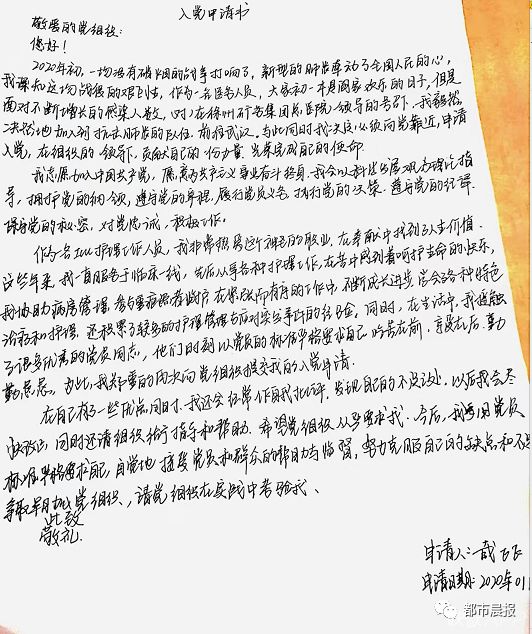 入党申请书
敬爱的党组织:
您好!
2020年初,一场没有硝烟的战争打响了,新型的肺炎牵动了全国人民的心,
我深知这场战役的艰巨性,作为一名医务人员,大家初一本是阖家欢乐的日子,但是
面对不断增长的感染人数,我们在徐州矿务集团总医院领导的号召下,我毅然
决然地加入到抗击肺炎的队伍,前往武汉,与此同时我决定必须向党靠近,申请
入党,在组织的领导下,贡献自己的一份力量,光荣完成自己的使命
我志愿加入中国共产党,愿意为共产主义事业奋斗终身,我会以科学发展观为理论指
导,拥护党的纲领,遵守党的章程,履行党员义务,执行党的决策,遵守党的纪律
保守党的秘密,对党忠诚,积极工作。
作为一名ICU护理工作人员,我非常热爱这个神圣的职业,在奉献中找到了人生价值
这些年来,我一直服务于临床一线,先后从事各种护理工作,在苦中感到着呵护生命的快乐,
我协助病房管理,参与重病患者监护在紧张而有序的工作中,不断成长进步,学会各种特色
治疗和护理,还积累了较多的护理管理与应对突发事件的经验,同时,在生活中,我接触
了很多优秀的党员同志,他们时刻以党员的标准严格要求自己,吃苦在前,享受在后,勤
勤恳恳。为此,我郑重的再次向党组织提交我的入党申请
在自己有了一些优点同时,我还会经常作自我批评,发现自己的不足之处,以后我会尽
快改正,同时还请组织给予指导和帮助。希望党组织从严要求我,今后,我要用党员
标准严格要求自己,自觉地接受党员和群众的帮助与监督,努力克服自己的缺点和不足
争取早日加入党组织、请党组织在实践中考验我、
此致
敬礼
申请人:
申请日期:2020年01
都市晨报